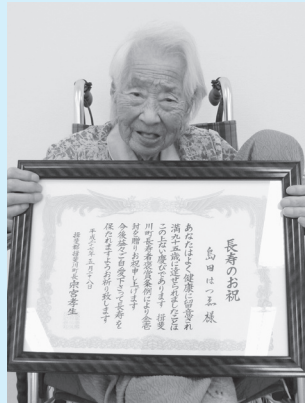 長寿のお祝
島田はつゑ 様
あなたはよく健康に留意され
満九十五歳に達せられましたことは
この上ない慶びであります 揖斐
川町長寿者褒賞条例により金壱
封を贈りお祝申し上げます
今後益々ご自愛下さって長寿を
保たれますようお祈り致します
平成二十七年三月二十八日
揖斐郡揖斐川町長 宗宮孝生